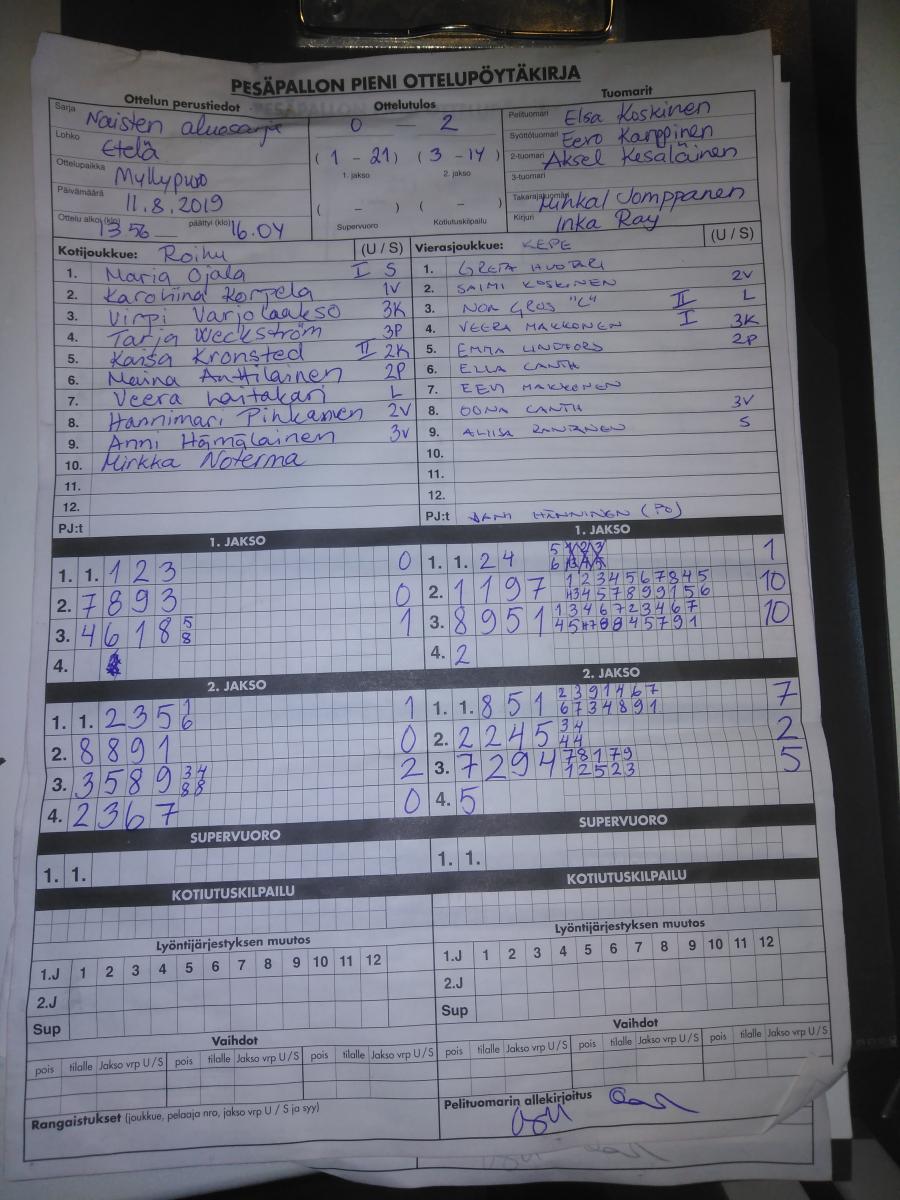 PESÄPALLON PIENI OTTELUPÖYTÄKIRJA
Ottelun perustiedot Ottelutulos Tuomarit
Sarja Naisten aluesarja
Lohko Etelä
Ottelupaikka Myllypuro
Päivämäärä 11.8.2019
Ottelu alkoi (klo) 13 56 päättyi (klo) 16.04
0 — 2
( 1 - 21 ) ( 3 - 14 )
1. jakso 2. jakso
( - ) ( - )
Supervuoro Kotiutuskilpailu
Pelituomari Elsa Koskinen
Syöttötuomari Eero Karppinen
2-tuomari Aksel Kesäläinen
3-tuomari
Takarajatuomari Jomppanen
Kirjuri Inka Ray
Kotijoukkue: Roihu (U / S)
1. Maria Ojala I S
2. Karoliina Korpela 1V
3. Virpi Varjolaakso 3K
4. Tarja Weckström 3P
5. Kaisa Kronsted II 2K
6. Maina Anttilainen 2P
7. Veera L
8. Hannimari Pihkanen 2V
9. Anni Hämäläinen 3V
10. Mirkka Noterma
11.
12.
PJ:t
Vierasjoukkue: KEPE (U / S)
1. GRETA HUOTARI
2. SAIMI KOSKINEN 2V
3. NOA GROS "C" II L
4. VEERA MAKKONEN I 3K
5. EMMA LINDFORS 2P
6. ELLA CANTH
7. EEVI MAKKONEN
8. OONA CANTH 3V
9. ALIISA RANTANEN S
10.
11.
12.
PJ:t JANI HÄNNINEN (PO)
1. JAKSO
1. 1. 1 2 3 0
2. 7 8 9 3 0
3. 4 6 1 8 5 1
8
4.
1. JAKSO
1. 1. 2 4 5 1 2 3 1
6 3 4 5
2. 1 1 9 7 1 2 3 4 5 6 7 8 4 5 10
4 5 7 8 9 9 1 5 6
3. 8 9 5 1 1 3 4 6 7 2 3 4 6 7 10
8 4 5 7 9 1
4. 2
2. JAKSO
1. 1. 2 3 5 1 1
6
2. 8 8 9 1 0
3. 3 5 8 9 3 4 2
8 8
4. 2 3 6 7 0
2. JAKSO
1. 1. 8 5 1 2 3 9 1 4 6 7 7
6 7 3 4 8 9 1
2. 2 2 4 5 3 4 2
4 4
3. 7 2 9 4 7 8 1 7 9 5
1 2 5 2 3
4. 5
SUPERVUORO
1. 1.
SUPERVUORO
1. 1.
KOTIUTUSKILPAILU
KOTIUTUSKILPAILU
Lyöntijärjestyksen muutos
1.J 1 2 3 4 5 6 7 8 9 10 11 12
2.J
Sup
Lyöntijärjestyksen muutos
1.J 1 2 3 4 5 6 7 8 9 10 11 12
2.J
Sup
Vaihdot
pois tilalle Jakso vrp U / S pois tilalle Jakso vrp U / S pois tilalle Jakso vrp U / S
Vaihdot
pois tilalle Jakso vrp U / S pois tilalle Jakso vrp U / S pois tilalle Jakso vrp U / S
Rangaistukset (joukkue, pelaaja nro, jakso vrp U / S ja syy)
Pelituomarin allekirjoitus